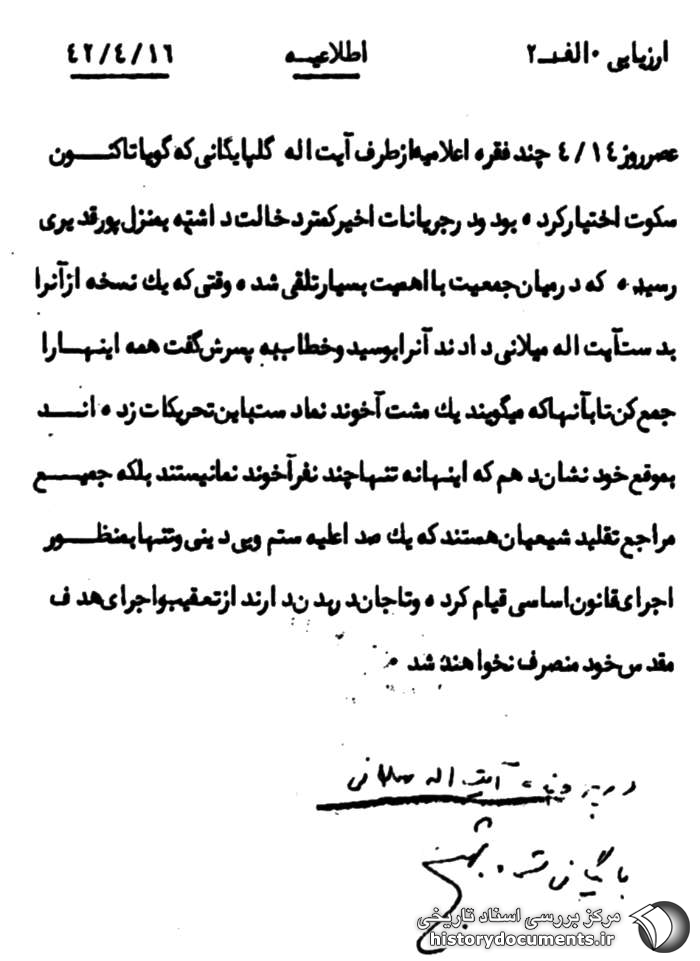 ارزیابی ۰ الف ـ ۲ اطلاعیـــه ٤٢/٤/١٦
عصرروز ١٤/ ٤ چند فقره اعلامیه از طرف آیت اله گلپایگانی که گویا تاکنـــون
سکوت اختیار کرده بود و در جریانات اخیر کمتر دخالت داشته بمنزل پورقدیری
رسیده که در میان جمعیت با اهمیت بسیار تلقی شده وقتی که یك نسخه از آنرا
بدست آیت اله میلانی دادند آنرا بوسید وخطاب به پسرش گفت همه اینهـــا را
جمع کن تا بآنها که میگویند یك مشت آخوند نما دست باین تحریکات زده انـــد
بموقع خود نشان دهم که اینها نه تنها چند نفر آخوند نما نیستند بلکه جمیـــع
مراجع تقلید شیعیان هستند که یك صدا علیه ستم وبی دینی وتنها بمنظـــور
اجرای قانون اساسی قیام کرده وتا جان در بدن دارند از تعقیب و اجرای هدف
مقدس خود منصرف نخواهند شد ۰
در پرونده آیت اله میلانی
بایگانی شود
مرکز بررسی اسناد تاریخی
historydocuments.ir